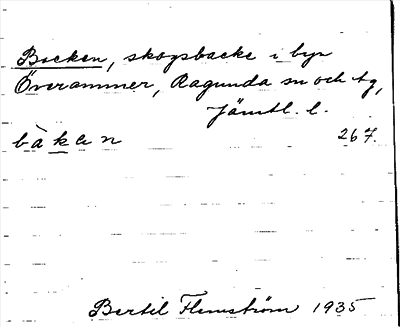 Backen, skogsbacke i byn
Överammer, Ragunda sn och tg,
Jämtl. l.
bàken 267.
Bertil Flemström 1935